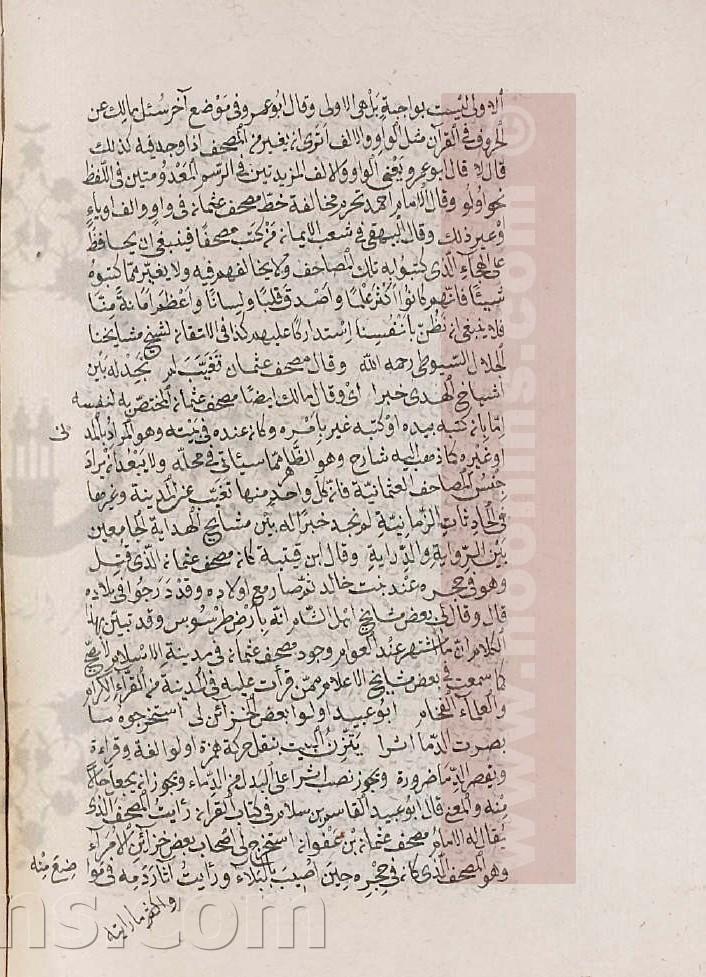 الاولى ليست بواجبة بل هي الاولى وقال ابو عمرو في موضع آخر سئل مالك عن
الحروف في القرآن مثل الواو والالف أترى ان يغير من المصحف اذا وجد فيه كذلك
قال لا قال ابو عمرو يعني الواو والالف المزيدتين في الرسم المعدومتين في اللفظ
نحو اولو وقال الامام احمد تحرم مخالفة خط مصحف عثمان في واو والف او ياء
او غير ذلك وقال البيهقي في شعب الايمان من كتب مصحفا فينبغي ان يحافظ
على الهجاء الذي كتبوا به تلك المصاحف ولا يخالفهم فيه ولا يغير مما كتبوه
شيئا فانهم كانوا اكثر علما واصدق قلبا ولسانا واعظم امانة منا
فلا ينبغي ان نظن بانفسنا استدراكا عليهم كذا في الاتقان لشيخ مشايخنا
الجلال السيوطي رحمه الله وقال مصحف عثمان تغيب لم نجد له بين
اشياخ الهدى خبرا اي وقال مالك ايضا مصحف عثمان المختص به لنفسه
اما بان كتبه بيده او كتبه غير بامره وكان عنده في بيته وهو المراد بالمد ني
او غيره كما ذهب اليه شارح وهو الظاهر مما سيأتي في محله ولا يبعد ان يراد
جنس المصاحف العثمانية فان كل واحد منها تغيب عن المدينة وغيرها
في الحادثات الزمانية لم نجد خبرا له بين مشايخ الهداية الجامعين
بين الرواية والدراية وقال ابن قتيبة كان مصحف عثمان الذي قتل
وهو في حجره عند بنت خالد ثم صار مع اولاده وقد درجوا في بلاده
قال وقال لي بعض مشايخ اهل الشام انه بارض طرسوس وقد تبين بهذا
الكلام ان ما اشتهر عند العوام وجود مصحف عثمان في مدينة الاسلام لا يصح
كما سمعت في بعض مشايخ الاعلام ممن قرأت عليه في المدينة من القراء الكرام
والعلماء الفخام ابو عبيد اولوا بعض الخزائن لي استخرجوه ما
بصرت الدما اثرا يتزن البيت بنقل حركة همزة اولوا لغة وقراءة
وبقصر الدما ضرورة ويجوز نصب اثرا على البدل من الدماء ويجوز ان يجعل حالا
منه والمعنى قال ابو عبيد القاسم بن سلام في كتاب القراآت رأيت المصحف الذي
يقال له الامام مصحف عثمان بن عفوان استخرج لي اصحاب بعض خزائن الامراء
وهو المصحف الذي كان في حجره حين اصيب بالبلاء ورأيت آثار دمه في موا ضع منه
واكثر ما رايته
noomhns.com ©